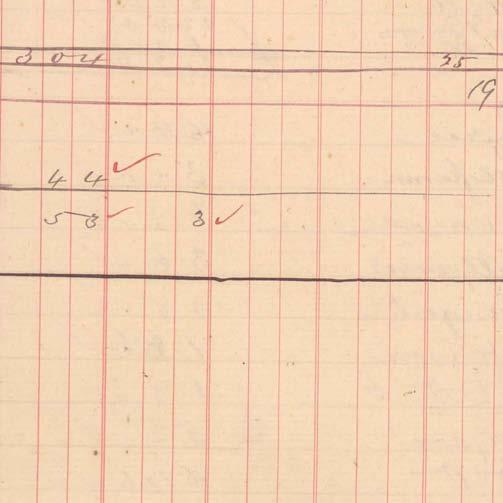 304 25
19
44 ✓
53 ✓ 3 ✓